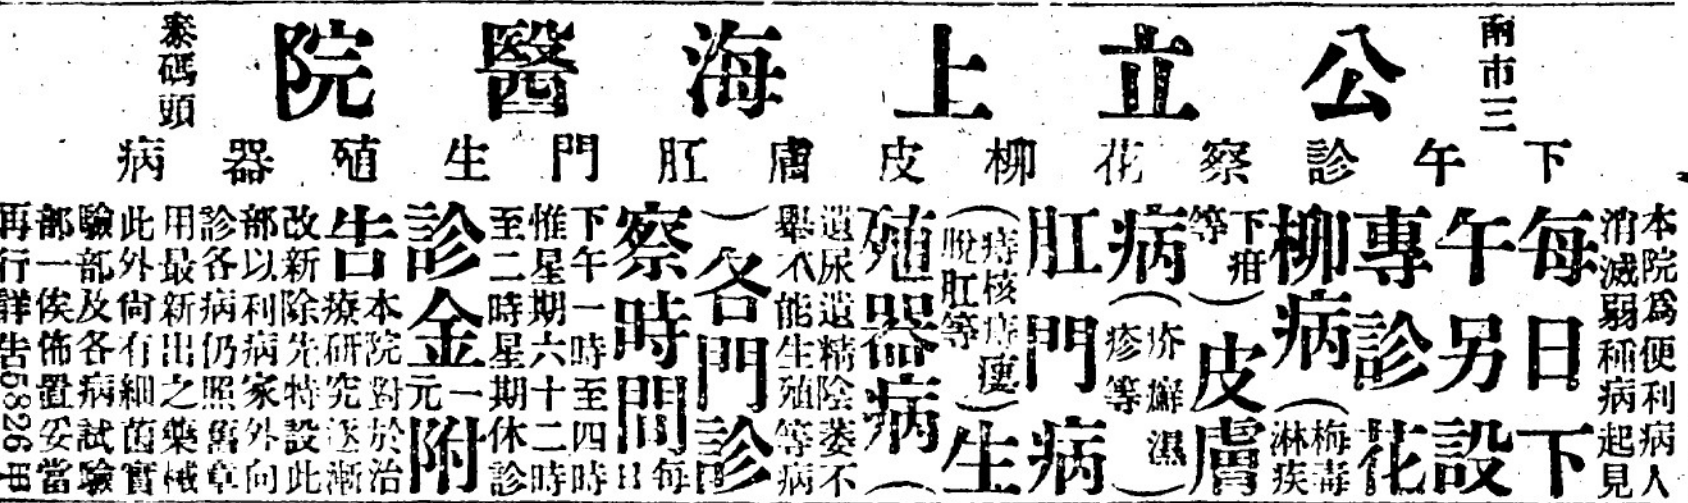 南市三
公立上海醫院
泰碼頭
下午診察花柳皮膚肛門生殖器病
本院爲便利病人
消滅弱種病起見
每日下
午另設
專診花
柳病（梅毒
淋疾
下疳
等）皮膚
病（疥癬濕
疹等）
肛門病
（痔核痔瘻
脫肛等）生
殖器病（
遺尿遺精陰萎不
舉不能生殖等病
）各門診
察時間每日
下午一時至四時
惟星期六十二時
至二時星期休診
診金一元附
告本院對於治
療研究逐漸
改新除先特設此
部以利病家外向
診各病仍照舊章
用最新出之藥械
此外尙有細菌實
驗部及各病試驗
部一俟佈置妥當
再行詳告5826甲